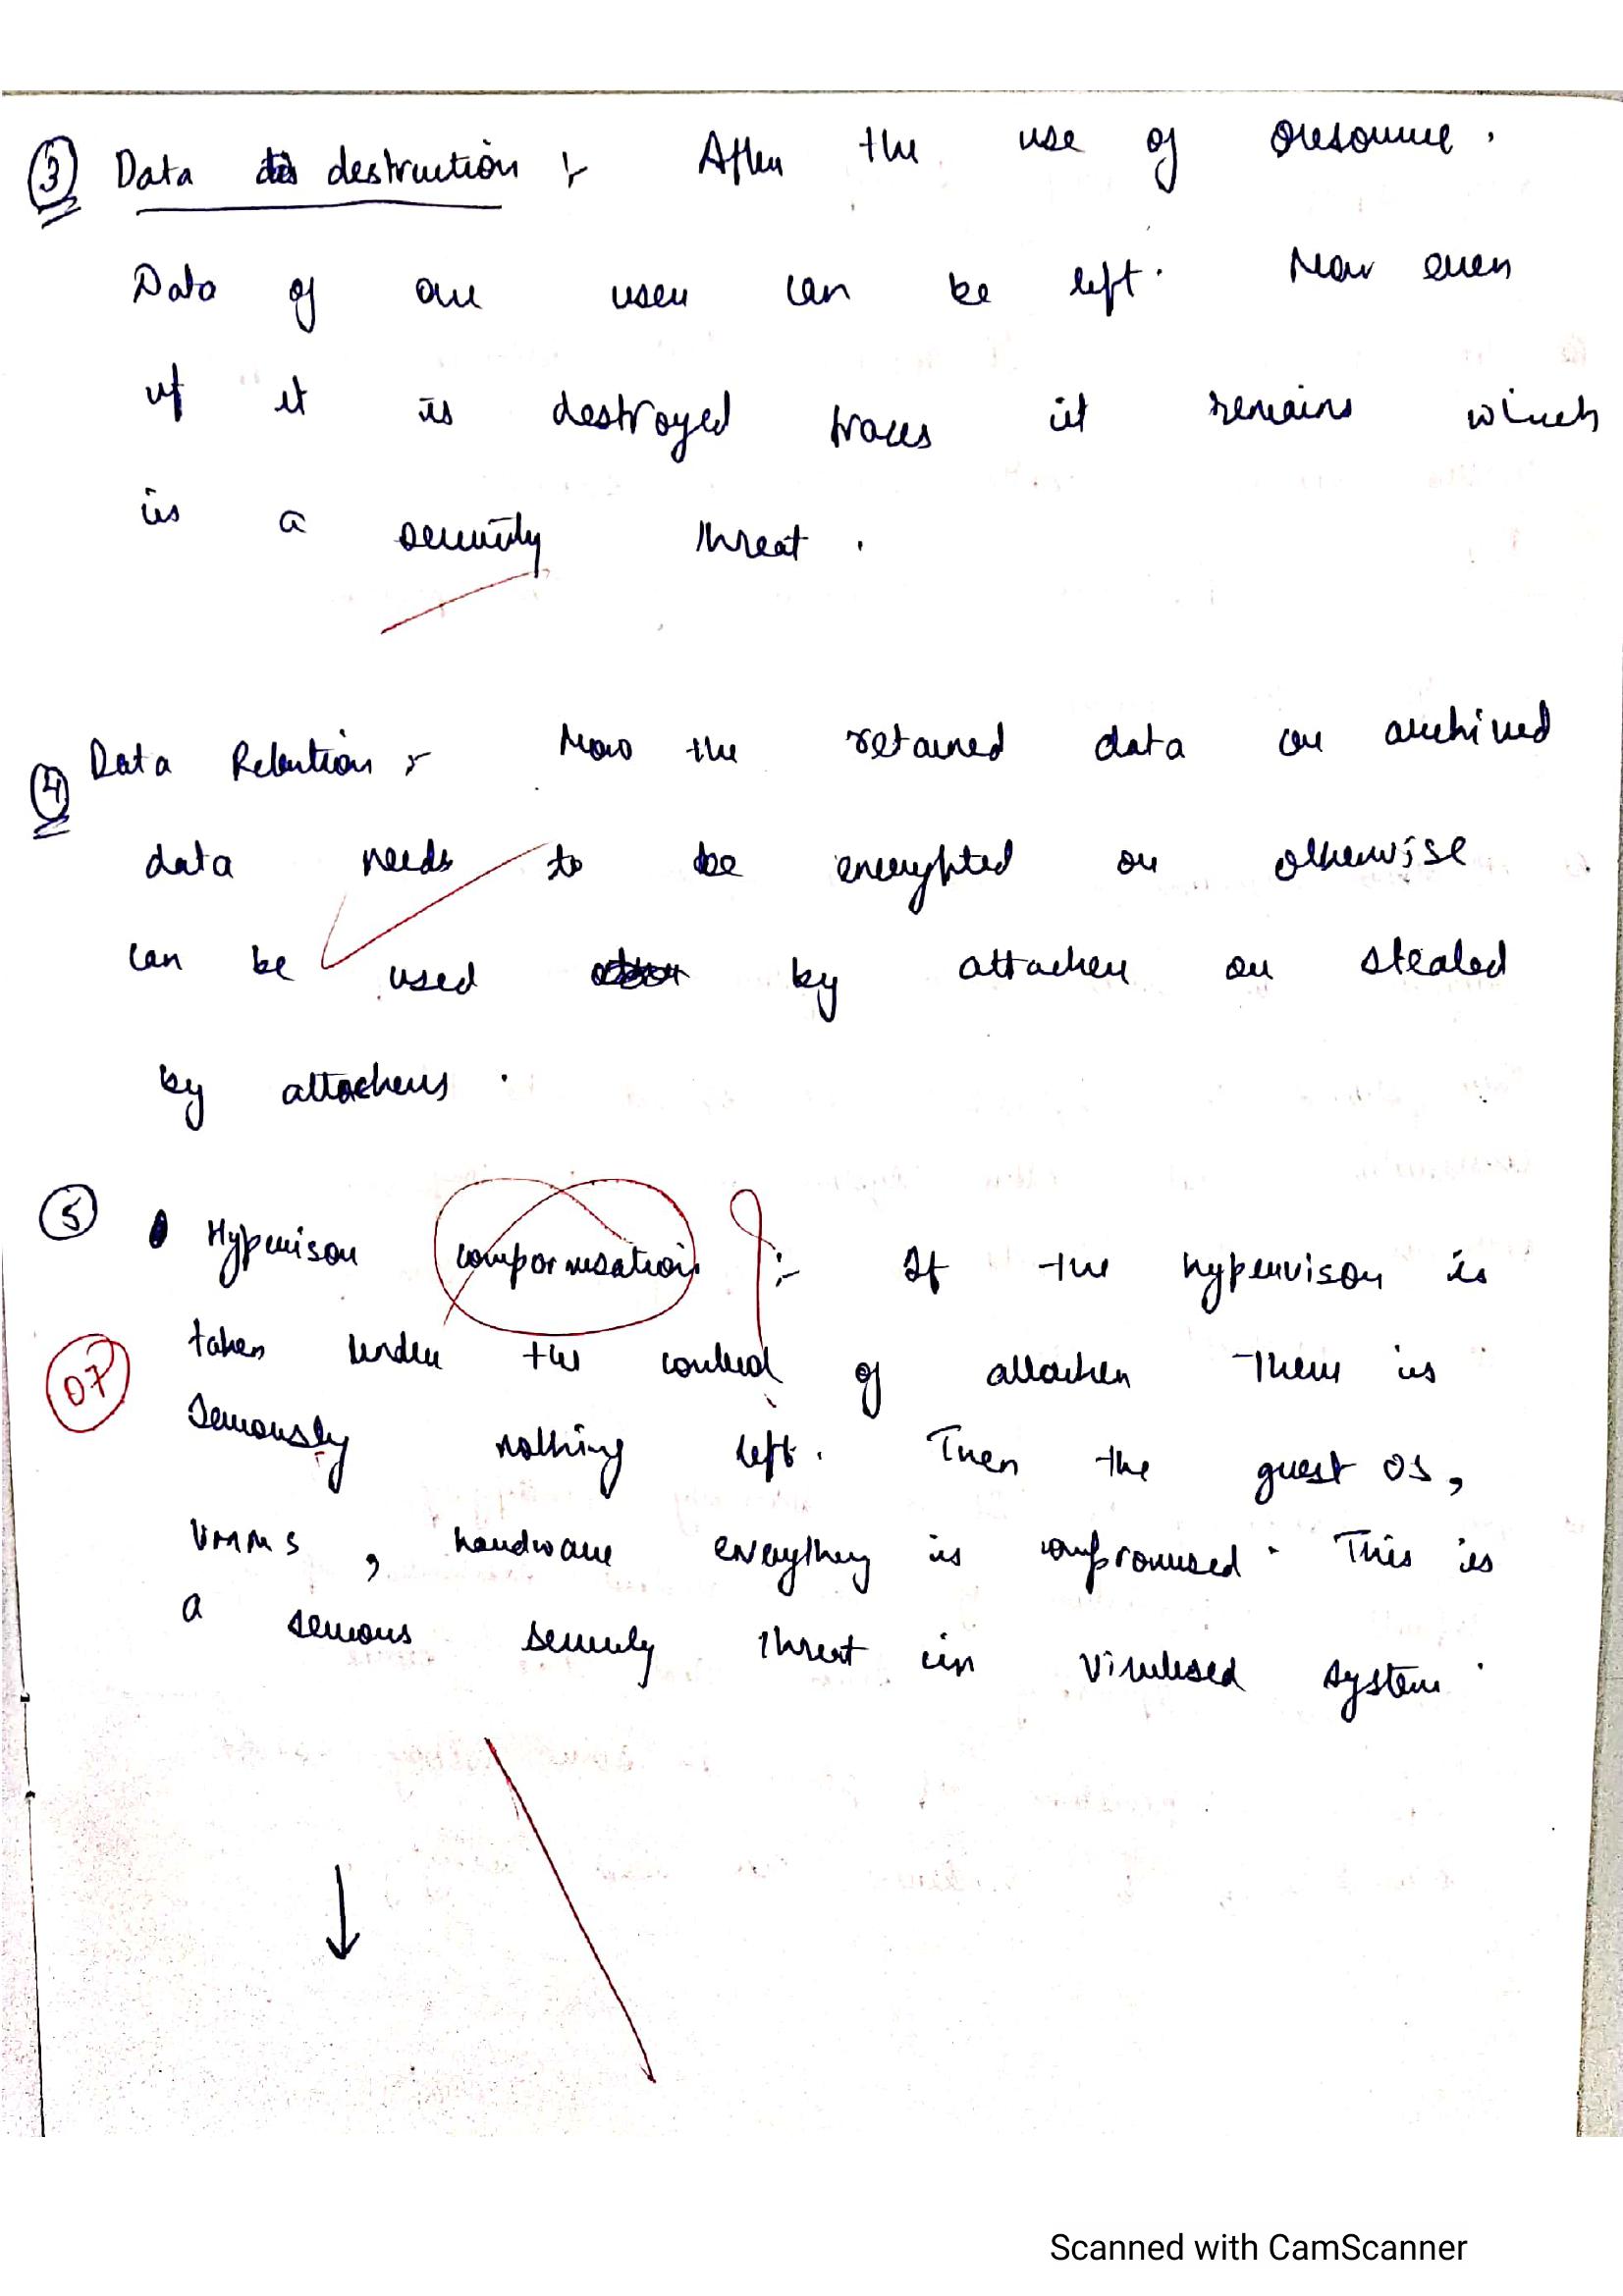 ③ Data destruction :- After the use of resource.
Data of one user can be left. Now even
if it is destroyed traces it remains which
is a security threat.
④ Data Retention :- Now the retained data or archived
data needs to be encrypted or otherwise
can be used by attacker or stealed
by attackers.
⑤ Hypervisor :- If the hypervisor is
taken under the control of attacker there is
07
seriously nothing left. Then the guest OS,
VMMs, hardware everything is compromised. This is
a serious security threat in system.
Scanned with CamScanner